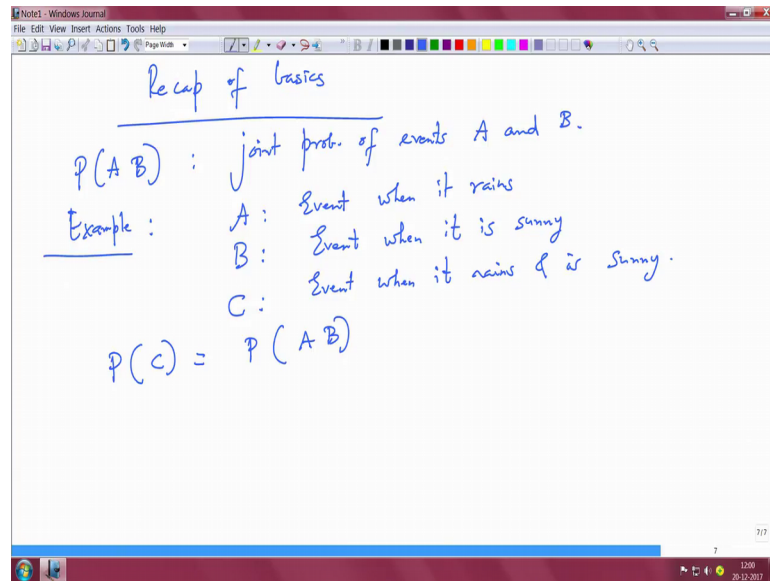 Note1 - Windows Journal
File Edit View Insert Actions Tools Help
Page Width
Recap of basics
P(AB) : joint prob. of events A and B.
Example : A: Event when it rains
B: Event when it is sunny
C: Event when it rains & is Sunny.
P(C) = P(AB)
7/7
7
12:00
20-12-2017